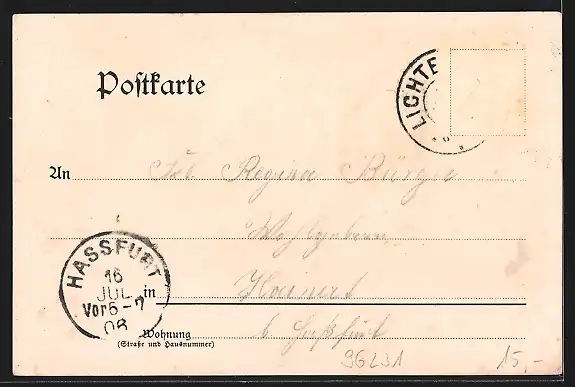 Postkarte
LICHTE
An Frl. Regina Bürger
Wohlgeboren
HASSFURT
16
JUL
Vor 6-7
03
in Hainert
Wohnung b. Haßfurt
(Straße und Hausnummer)
96231
15,-